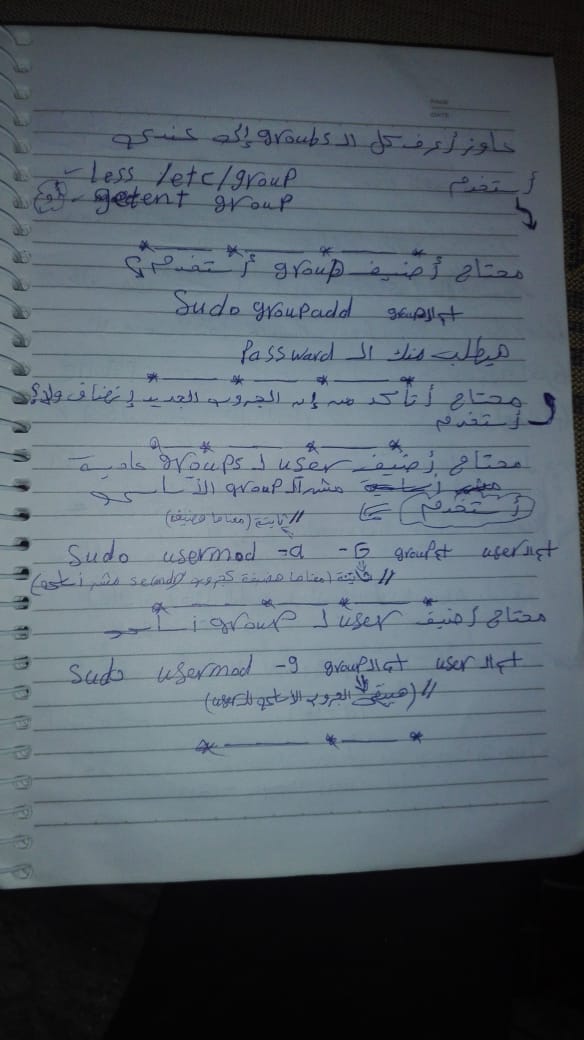 PAGE
DATE
عاوز أعرف كل الـ groups إلى عندى
أستخدم
- Less /etc/group
(أو) - getent group
محتاج أضيف group أستخدم؟
Sudo groupadd اسم الـ group
هيطلب منك الـ Password
محتاج أتأكد من إن الجروب الجديد إنضاف ولا؟
أستخدم
محتاج أضيف user لـ groups عادية
مش الـ group الأساسى
أستخدم
// ثابتة (معناها ضيف)
Sudo usermod -a -G اسم group اسم الـ user
// ثابتة (معناها ضيفه كجروب secondry مش أساسى)
محتاج أضيف user لـ group أساسى
Sudo usermod -g اسم الـ group اسم الـ user
// (هيبقى الجروب الأساسى للـ user)